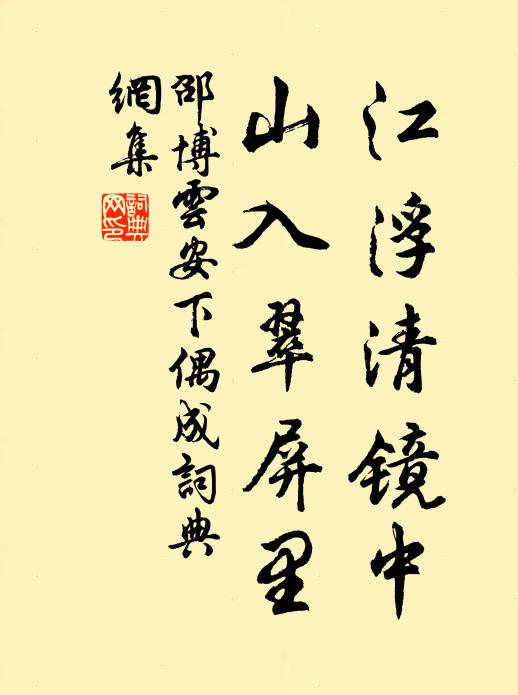 江浮清镜中
山入翠屏里
邵博雲安下偶成詞典
網集
詞典
网印